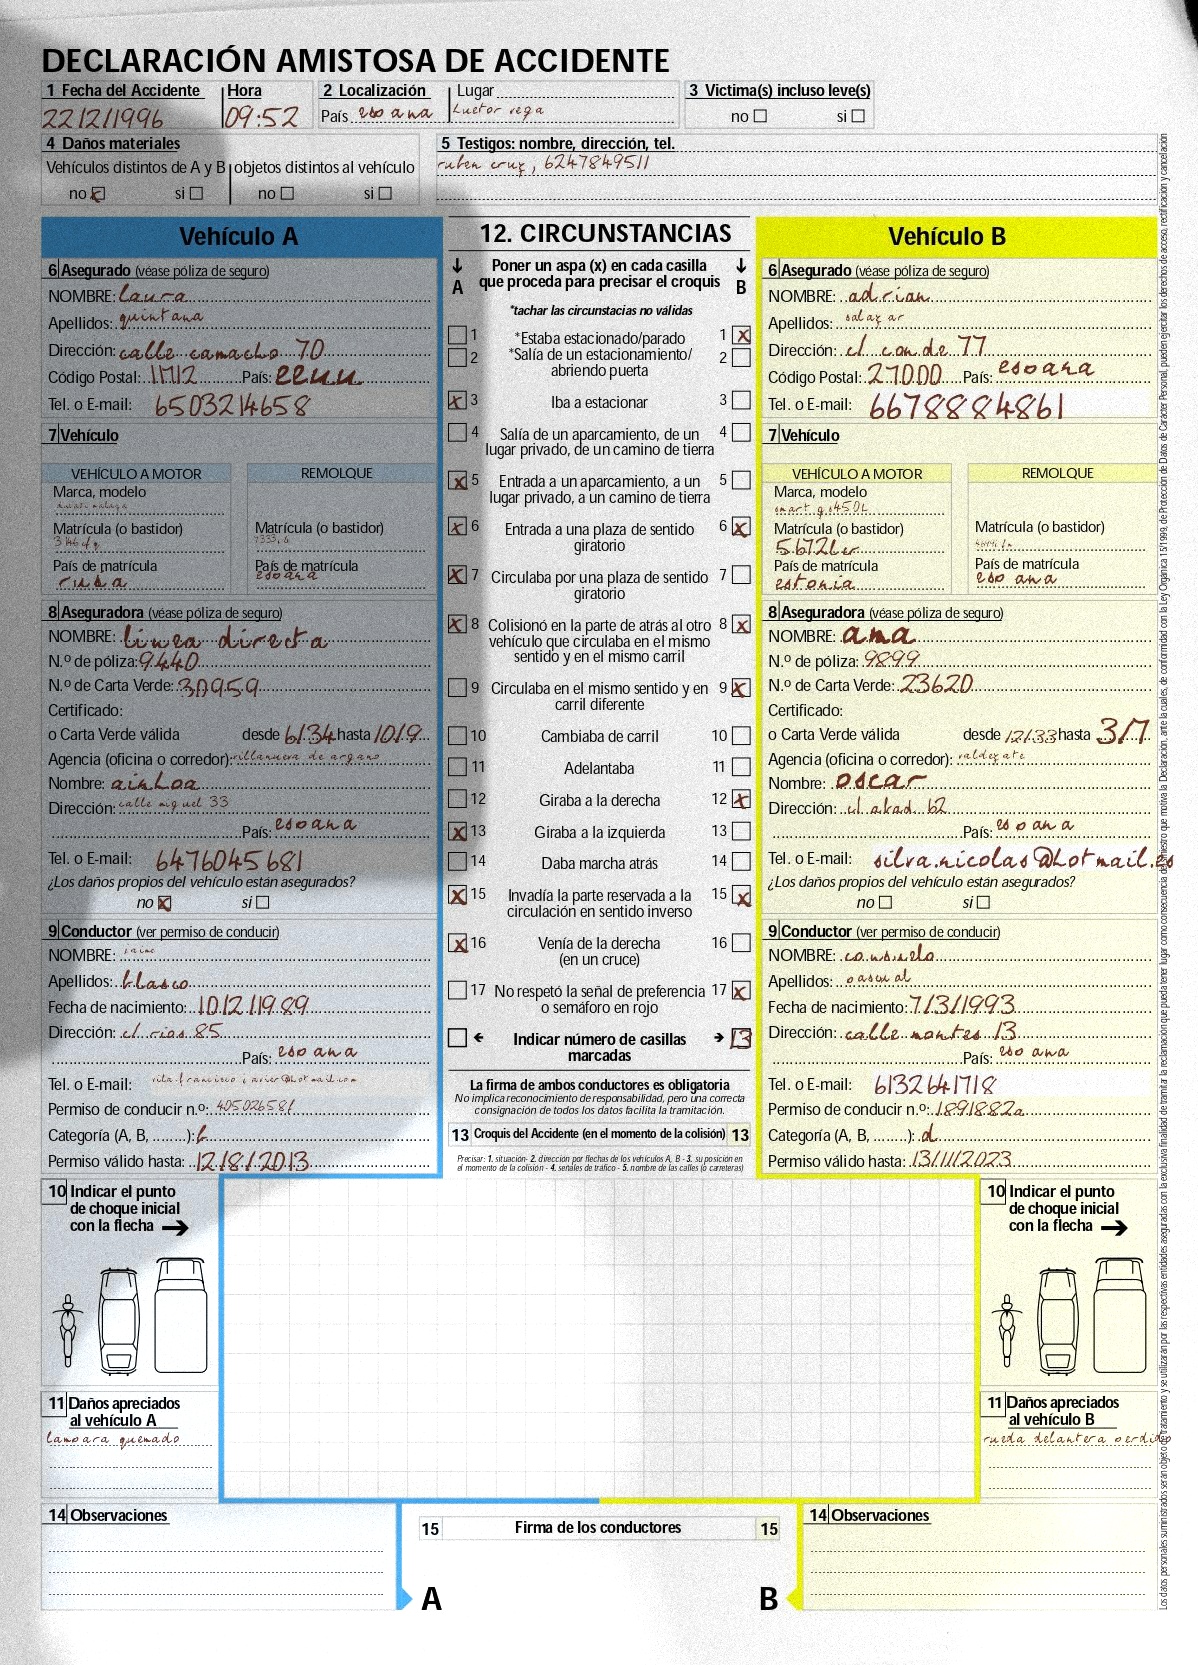 DECLARACIÓN AMISTOSA DE ACCIDENTE
1 Fecha del Accidente Hora 2 Localización Lugar 3 Victima(s) incluso leve(s)
22/2/1996 09:52 País espana Huetor vega no si
4 Daños materiales
Vehículos distintos de A y B objetos distintos al vehículo
no x si no si
5 Testigos: nombre, dirección, tel.
ruben cruz, 6247849511
Vehículo A
6 Asegurado (véase póliza de seguro)
NOMBRE: laura
Apellidos: quintana
Dirección: calle camacho 70
Código Postal: 11712 País: eeuu
Tel. o E-mail: 6503214658
7 Vehículo
VEHÍCULO A MOTOR REMOLQUE
Marca, modelo
Matrícula (o bastidor) Matrícula (o bastidor)
País de matrícula País de matrícula
rusa espana
8 Aseguradora (véase póliza de seguro)
NOMBRE: linea directa
N.º de póliza: 9440
N.º de Carta Verde: 30959
Certificado:
o Carta Verde válida desde 6/34 hasta 10/9
Agencia (oficina o corredor): villanueva de argano
Nombre: ainhoa
Dirección: calle miguel 33
País: espana
Tel. o E-mail: 6476045681
¿Los daños propios del vehículo están asegurados?
no x si
9 Conductor (ver permiso de conducir)
NOMBRE: jaime
Apellidos: blasco
Fecha de nacimiento: 10/2/1989
Dirección: c/ rios 85
País: espana
Tel. o E-mail: vila.francisco javier@hotmail.com
Permiso de conducir n.º: 40502658l
Categoría (A, B, ........): b
Permiso válido hasta: 12/8/2013
12. CIRCUNSTANCIAS
A Poner un aspa (x) en cada casilla que proceda para precisar el croquis B
*tachar las circunstacias no válidas
1 *Estaba estacionado/parado 1 x
2 *Salía de un estacionamiento/ 2
abriendo puerta
x 3 Iba a estacionar 3
4 Salía de un aparcamiento, de un 4
lugar privado, de un camino de tierra
x 5 Entrada a un aparcamiento, a un 5
lugar privado, a un camino de tierra
x 6 Entrada a una plaza de sentido 6 x
giratorio
x 7 Circulaba por una plaza de sentido 7
giratorio
x 8 Colisionó en la parte de atrás al otro 8 x
vehículo que circulaba en el mismo
sentido y en el mismo carril
9 Circulaba en el mismo sentido y en 9 x
carril diferente
10 Cambiaba de carril 10
11 Adelantaba 11
12 Giraba a la derecha 12 x
x 13 Giraba a la izquierda 13
14 Daba marcha atrás 14
x 15 Invadía la parte reservada a la 15 x
circulación en sentido inverso
x 16 Venía de la derecha 16
(en un cruce)
17 No respetó la señal de preferencia 17 x
o semáforo en rojo
Indicar número de casillas 13
marcadas
La firma de ambos conductores es obligatoria
No implica reconocimiento de responsabilidad, pero una correcta
consignación de todos los datos facilita la tramitación.
13 Croquis del Accidente (en el momento de la colisión) 13
Precisar: 1. situación- 2. dirección por flechas de los vehículos A, B - 3. su posición en
el momento de la colisión - 4. señales de tráfico - 5. nombre de las calles (o carreteras)
Vehículo B
6 Asegurado (véase póliza de seguro)
NOMBRE: adrian
Apellidos: salazar
Dirección: c/ conde 77
Código Postal: 27000 País: espana
Tel. o E-mail: 6678884861
7 Vehículo
VEHÍCULO A MOTOR REMOLQUE
Marca, modelo
smart gs450L
Matrícula (o bastidor) Matrícula (o bastidor)
País de matrícula País de matrícula
estonia espana
8 Aseguradora (véase póliza de seguro)
NOMBRE: ama
N.º de póliza: 9899
N.º de Carta Verde: 23620
Certificado:
o Carta Verde válida desde 12/33 hasta 3/7
Agencia (oficina o corredor): valdezate
Nombre: oscar
Dirección: c/ abad 62
País: espana
Tel. o E-mail: silva.nicolas@hotmail.es
¿Los daños propios del vehículo están asegurados?
no si
9 Conductor (ver permiso de conducir)
NOMBRE: consuelo
Apellidos: pascual
Fecha de nacimiento: 7/3/1993
Dirección: calle montes 13
País: espana
Tel. o E-mail: 6132641718
Permiso de conducir n.º: 1891882a
Categoría (A, B, .......): d
Permiso válido hasta: 13/11/2023
10 Indicar el punto
de choque inicial
con la flecha
11 Daños apreciados
al vehículo A
lampara quemado
10 Indicar el punto
de choque inicial
con la flecha
11 Daños apreciados
al vehículo B
rueda delantera perdido
14 Observaciones
15 Firma de los conductores 15
A B
14 Observaciones